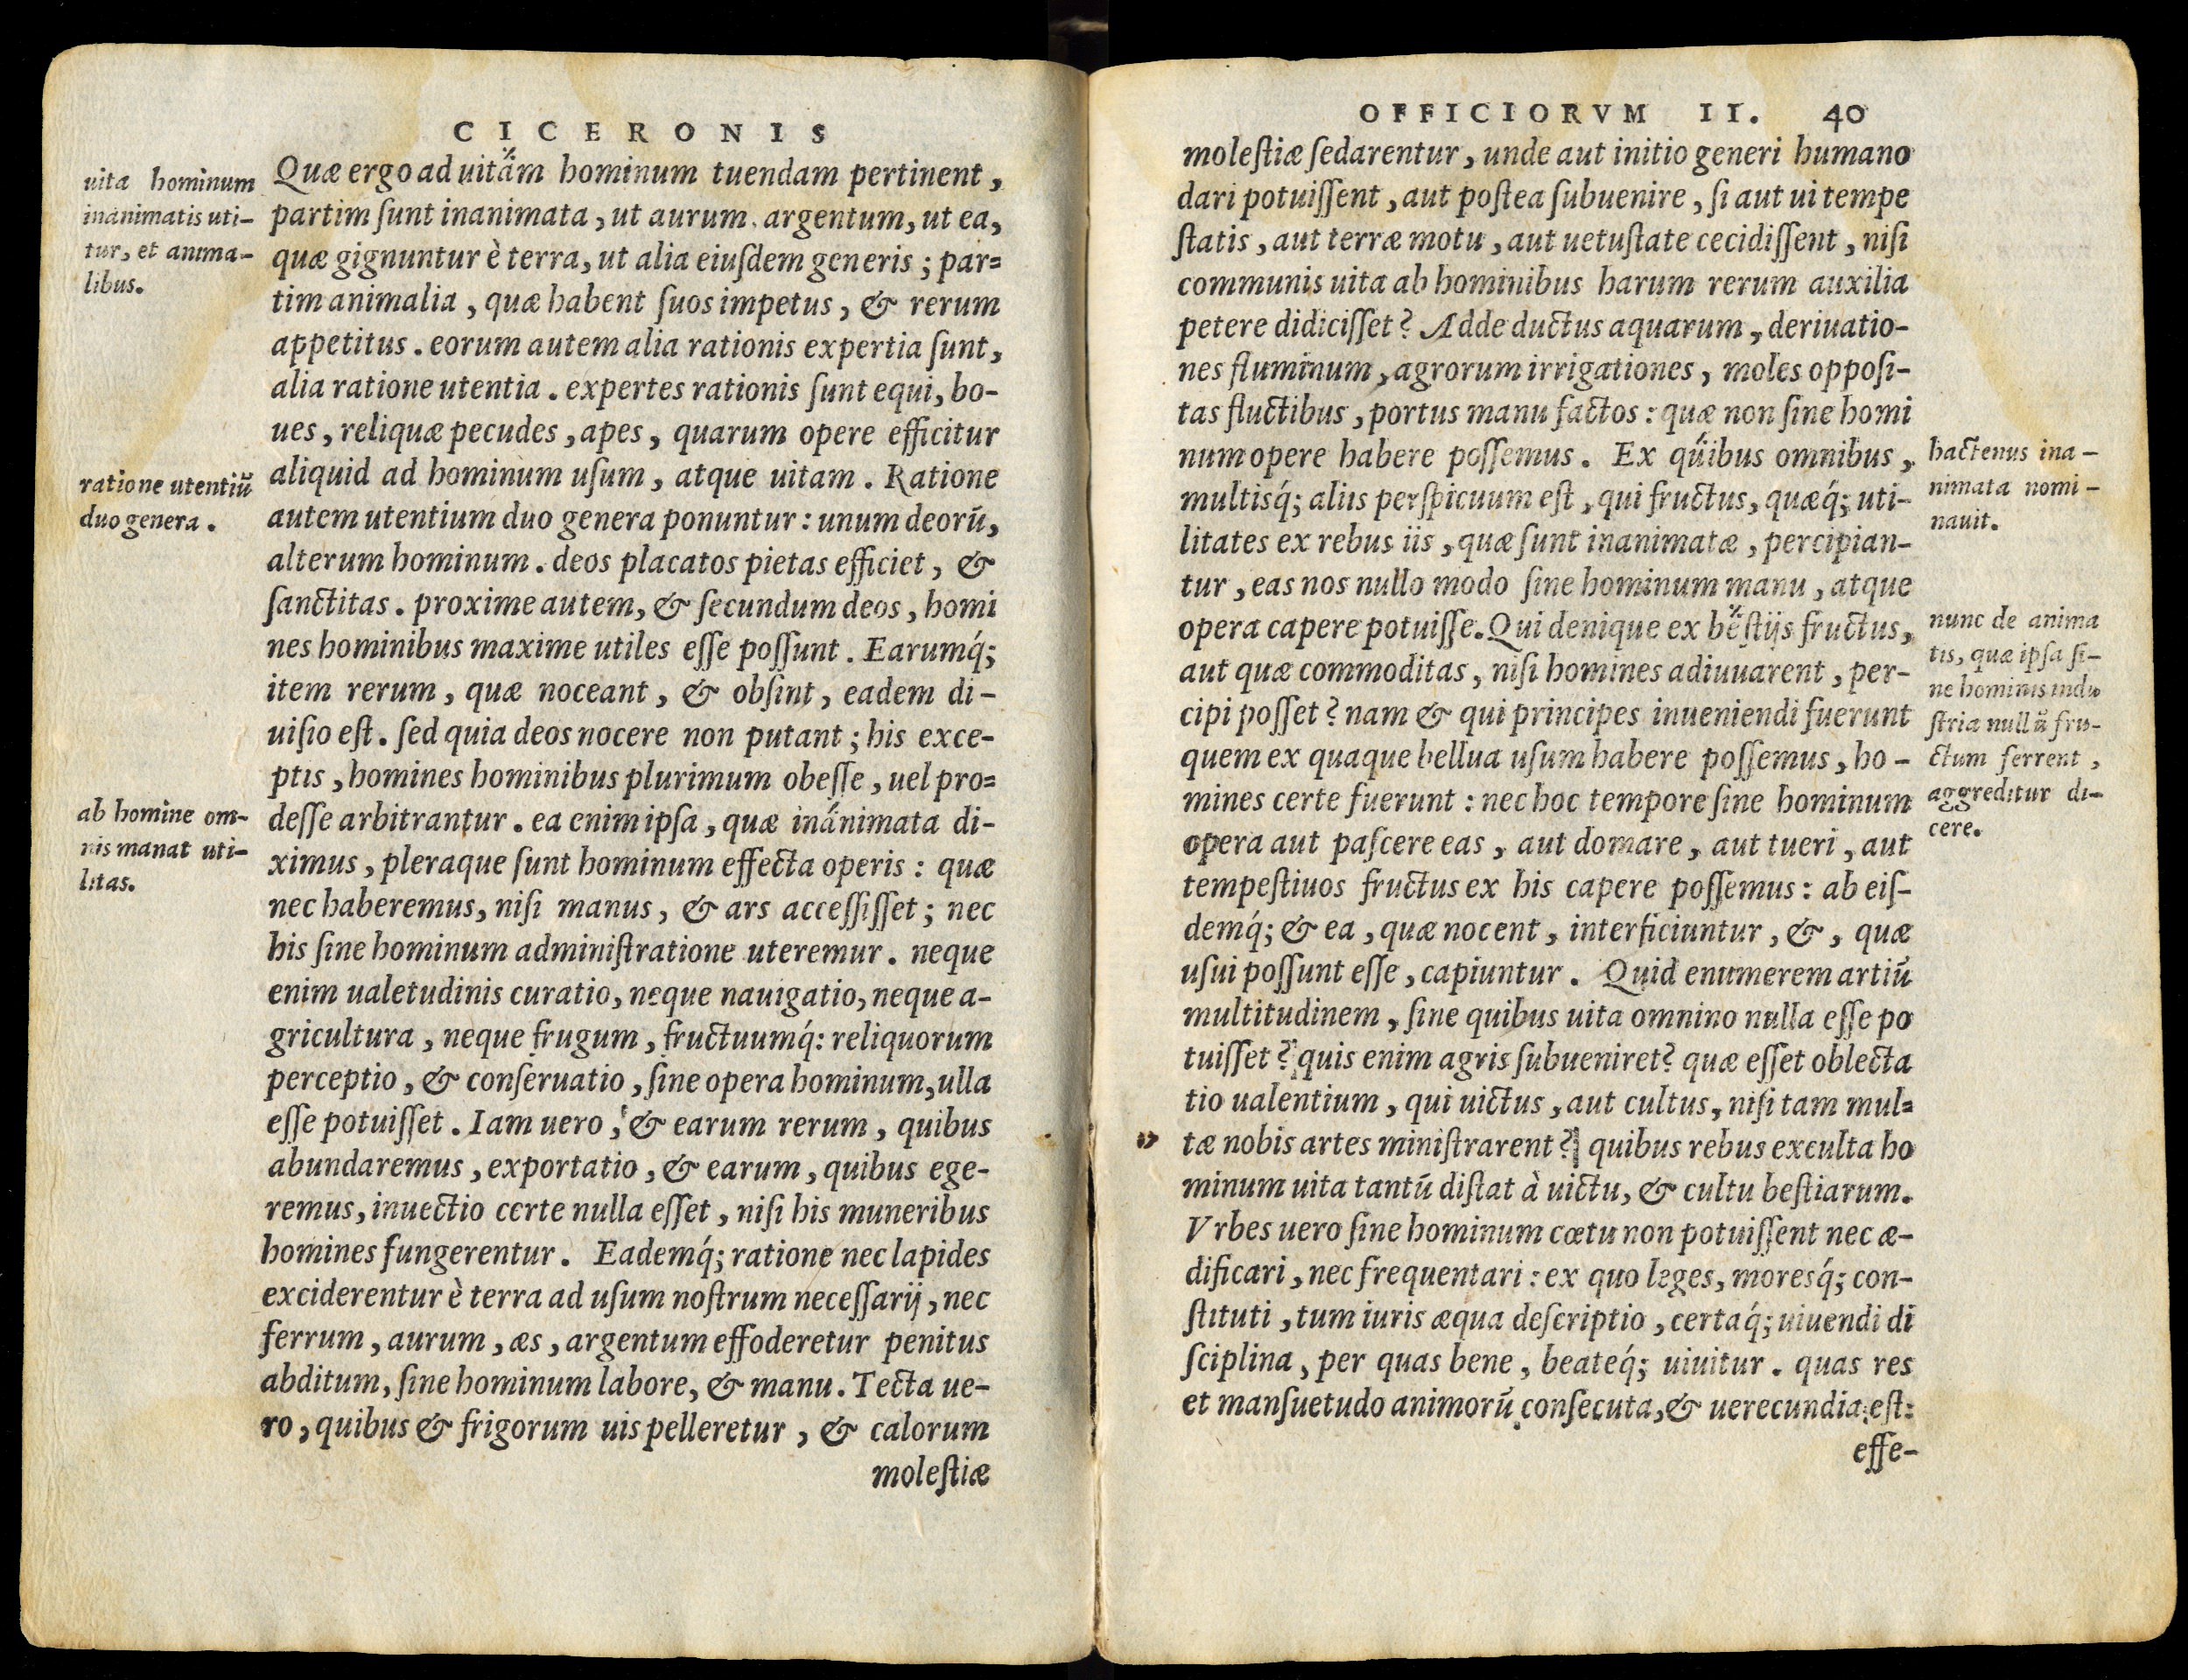 CICERONIS
uita hominum
inanimatis uti-
tur, et anima-
libus.
ratione utentiũ
duo genera.
ab homine om-
nis manat uti-
litas.
Quæ ergo ad uitam hominum tuendam pertinent,
partim ſunt inanimata, ut aurum. argentum, ut ea,
quæ gignuntur è terra, ut alia eiuſdem generis; par=
tim animalia, quæ habent ſuos impetus, & rerum
appetitus. eorum autem alia rationis expertia ſunt,
alia ratione utentia. expertes rationis ſunt equi, bo-
ues, reliquæ pecudes, apes, quarum opere efficitur
aliquid ad hominum uſum, atque uitam. Ratione
autem utentium duo genera ponuntur: unum deorũ,
alterum hominum. deos placatos pietas efficiet, &
ſanctitas. proxime autem, & ſecundum deos, homi
nes hominibus maxime utiles eſſe poſſunt. Earumq́;
item rerum, quæ noceant, & obſint, eadem di-
uiſio eſt. ſed quia deos nocere non putant; his exce-
ptis, homines hominibus plurimum obeſſe, uel pro=
deſſe arbitrantur. ea enim ipſa, quæ inanimata di-
ximus, pleraque ſunt hominum effecta operis: quæ
nec haberemus, niſi manus, & ars acceſſiſſet; nec
his ſine hominum adminiſtratione uteremur. neque
enim ualetudinis curatio, neque nauigatio, neque a-
gricultura, neque frugum, fructuumq́: reliquorum
perceptio, & conſeruatio, ſine opera hominum, ulla
eſſe potuiſſet. Iam uero, & earum rerum, quibus
abundaremus, exportatio, & earum, quibus ege-
remus, inuectio certe nulla eſſet, niſi his muneribus
homines fungerentur. Eademq́; ratione nec lapides
exciderentur è terra ad uſum noſtrum neceſſarij, nec
ferrum, aurum, æs, argentum effoderetur penitus
abditum, ſine hominum labore, & manu. Tecta ue-
ro, quibus & frigorum uis pelleretur, & calorum
moleſtiæ
OFFICIORVM II. 40
moleſtiæ ſedarentur, unde aut initio generi humano
dari potuiſſent, aut poſtea ſubuenire, ſi aut ui tempe
ſtatis, aut terræ motu, aut uetuſtate cecidiſſent, niſi
communis uita ab hominibus harum rerum auxilia
petere didiciſſet? Adde ductus aquarum, deriuatio-
nes fluminum, agrorum irrigationes, moles oppoſi-
tas fluctibus, portus manu factos: quæ non ſine homi
num opere habere poſſemus. Ex quibus omnibus,
multisq́; aliis perſpicuum eſt, qui fructus, quæq́; uti-
litates ex rebus iis, quæ ſunt inanimatæ, percipian-
tur, eas nos nullo modo ſine hominum manu, atque
opera capere potuiſſe. Qui denique ex beſtijs fructus,
aut quæ commoditas, niſi homines adiuuarent, per-
cipi poſſet? nam & qui principes inueniendi fuerunt
quem ex quaque bellua uſum habere poſſemus, ho-
mines certe fuerunt: nec hoc tempore ſine hominum
opera aut paſcere eas, aut domare, aut tueri, aut
tempeſtiuos fructus ex his capere poſſemus: ab eiſ-
demq́; & ea, quæ nocent, interficiuntur, &, quæ
uſui poſſunt eſſe, capiuntur. Quid enumerem artiũ
multitudinem, ſine quibus uita omnino nulla eſſe po
tuiſſet? quis enim agris ſubueniret? quæ eſſet oblecta
tio ualentium, qui uictus, aut cultus, niſi tam mul=
tæ nobis artes miniſtrarent? quibus rebus exculta ho
minum uita tantũ diſtat à uictu, & cultu beſtiarum.
Vrbes uero ſine hominum cœtu non potuiſſent nec æ-
dificari, nec frequentari: ex quo leges, moresq́; con-
ſtituti, tum iuris æqua deſcriptio, certaq́; uiuendi di
ſciplina, per quas bene, beateq́; uiuitur. quas res
et manſuetudo animorũ conſecuta, & uerecundia eſt:
effe-
hactenus ina-
nimata nomi-
nauit.
nunc de anima
tis, quæ ipſa ſi-
ne hominis indu
ſtria nullũ fru-
ctum ferrent,
aggreditur di-
cere.